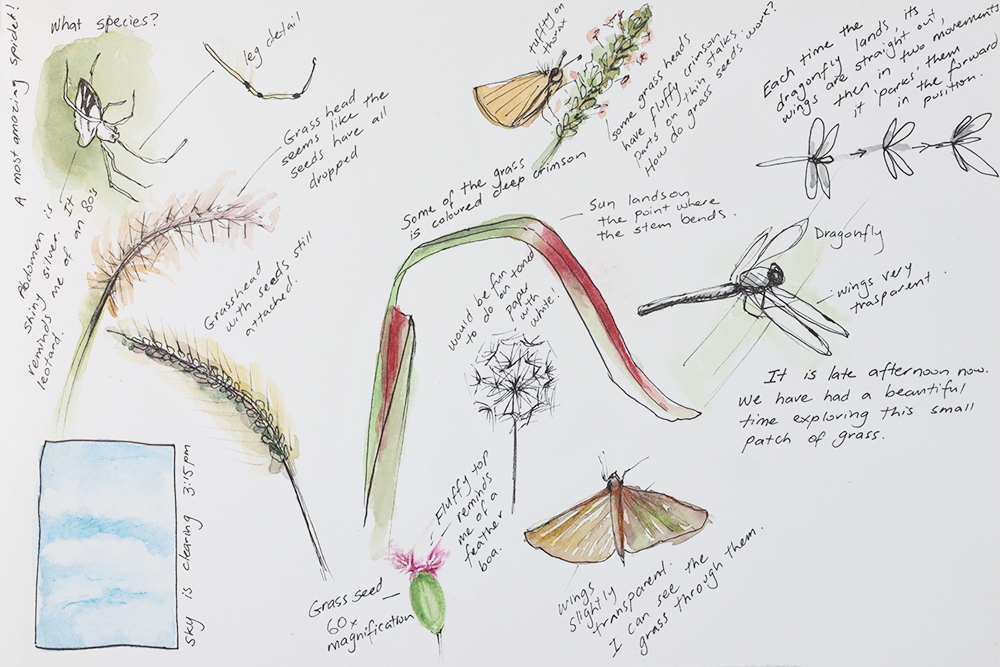 A most amazing spider!
What species?
leg detail
Abdomen is
shiny silver. It
reminds me of an 80's
leotard.
Grass head
seems like the
seeds have all
dropped
Grasshead
with seeds still
attached.
sky is clearing 3:15pm
tuffty on
thorax
some grass heads
have fluffy crimson
parts on thin stalks.
How do grass seeds work?
Some of the grass
is coloured deep crimson
Sun lands on
the point where
the stem bends.
would be fun
to do on toned
paper
with
white!
Fluffy top
reminds
me of a
feather
boa.
Grass seed
60x
magnification
Each time the
dragonfly lands, its
wings are straight out,
then in two movements
it 'parks' them
in the forward
position.
Dragonfly
wings very
trasparent.
It is late afternoon now.
We have had a beautiful
time exploring this small
patch of grass.
wings
slightly
transparent.
I can see the
grass through them.